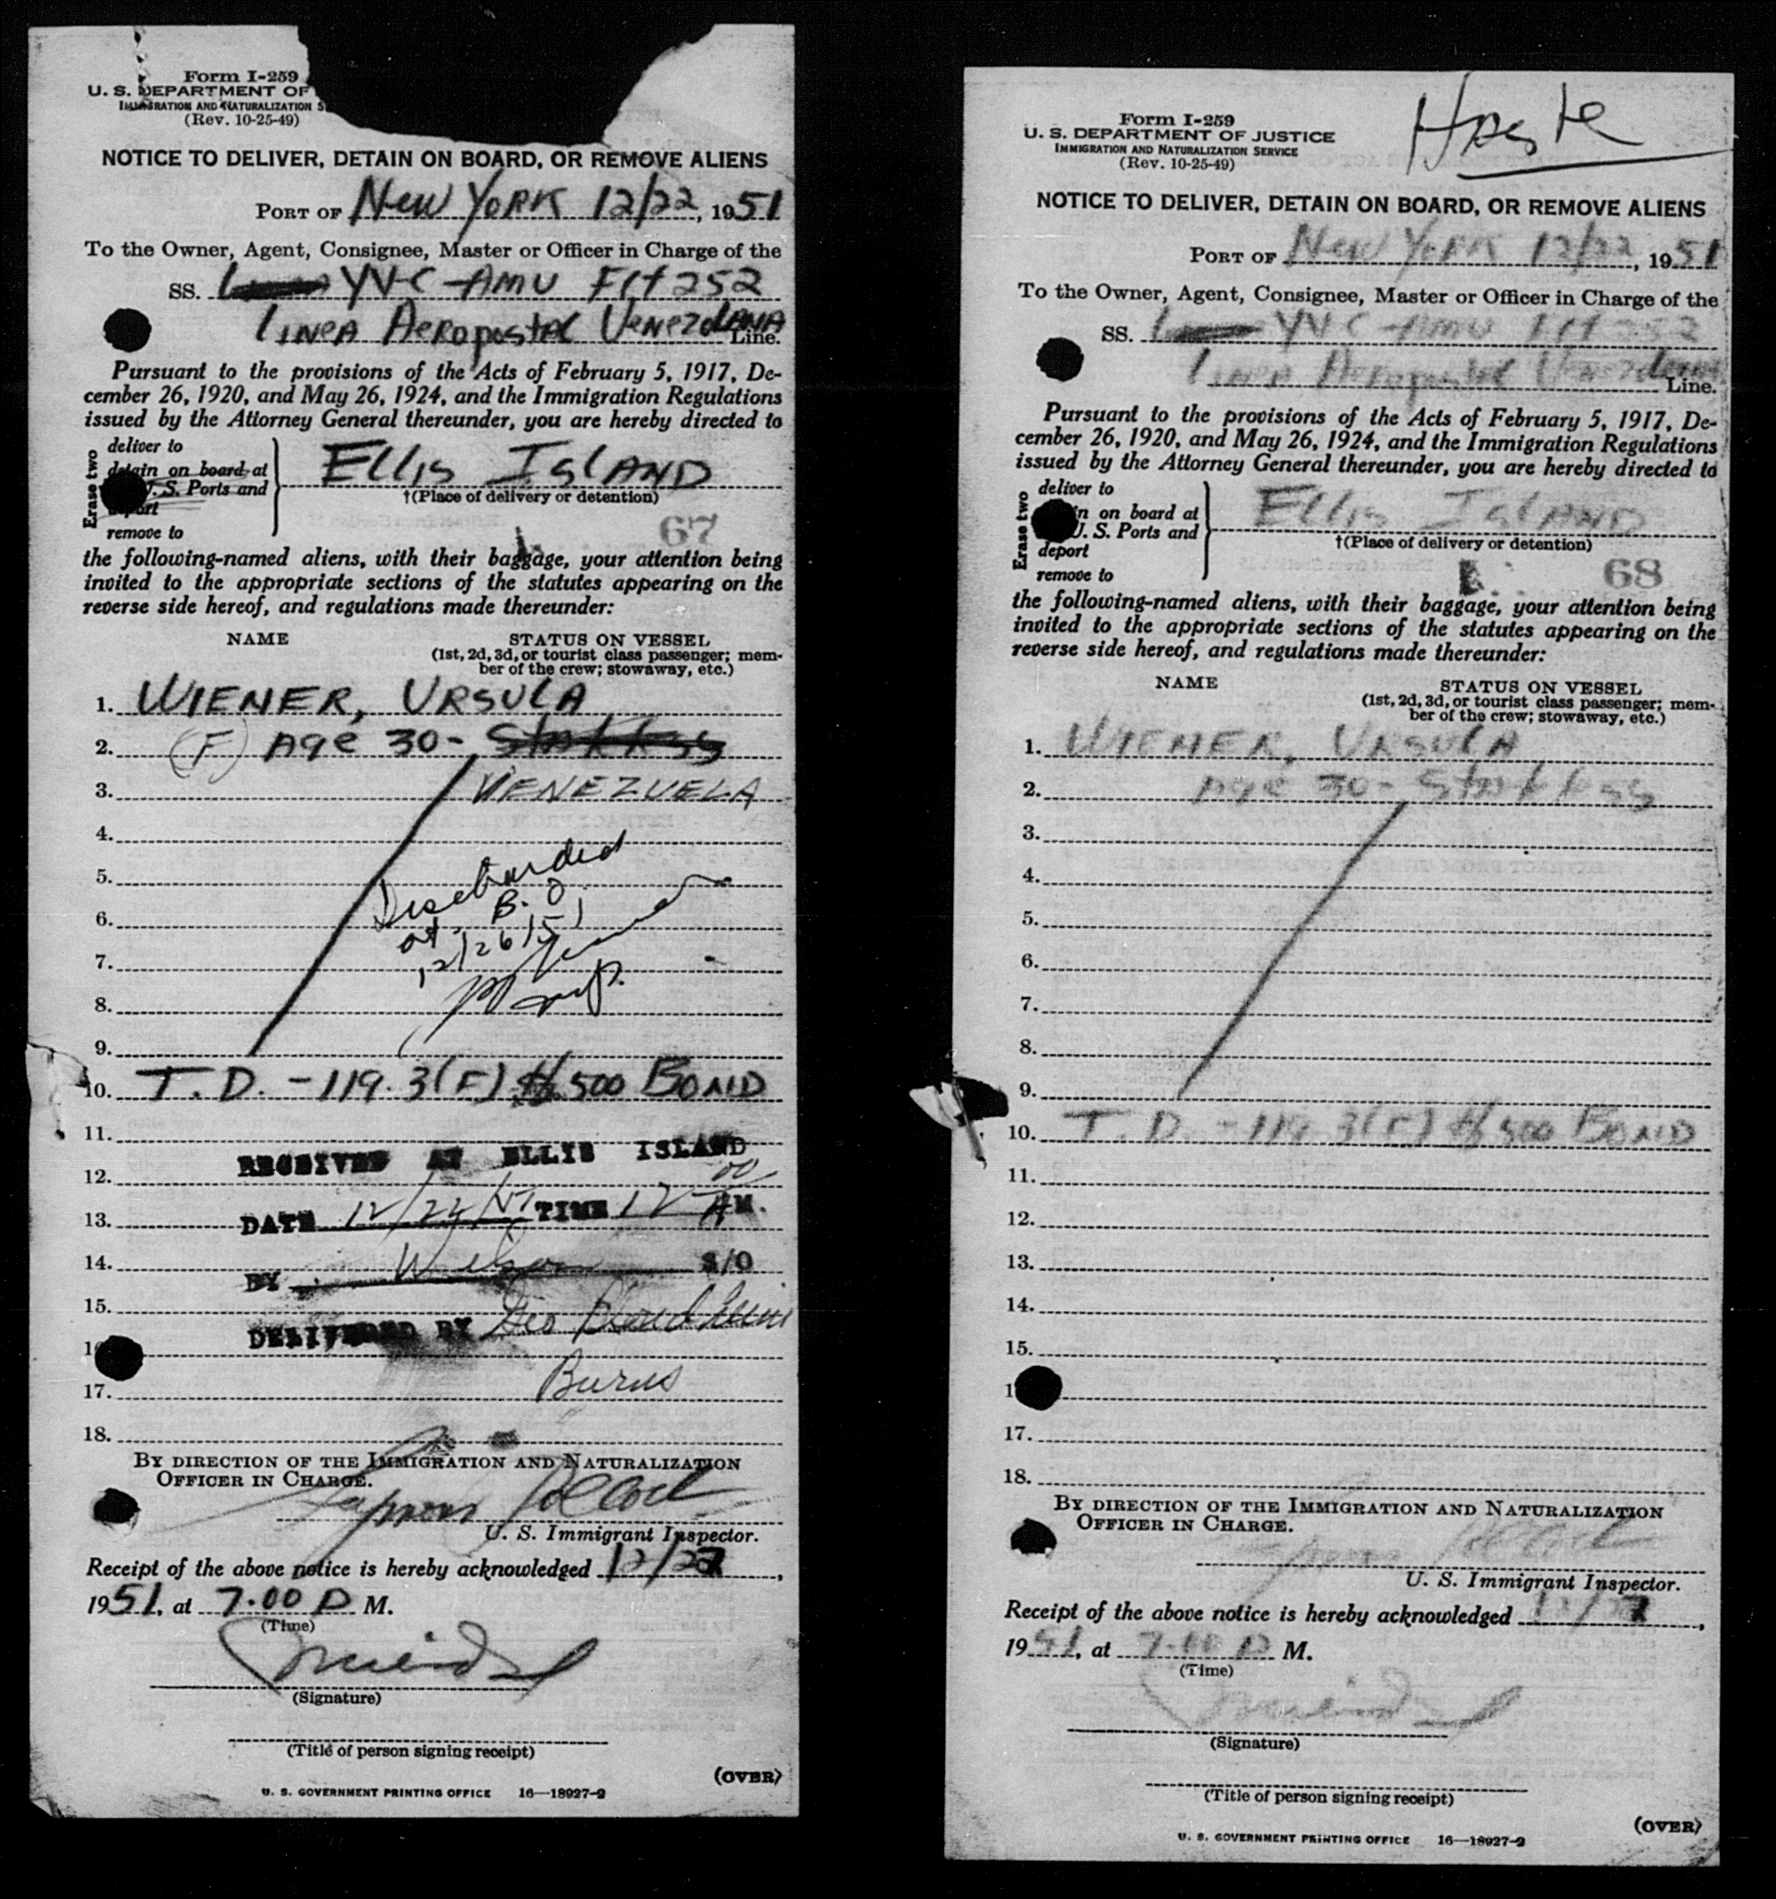 Form I-259
U. S. DEPARTMENT OF
IMMIGRATION AND NATURALIZATION S
(Rev. 10-25-49)
NOTICE TO DELIVER, DETAIN ON BOARD, OR REMOVE ALIENS
PORT OF NEW YORK 12/22, 1951
To the Owner, Agent, Consignee, Master or Officer in Charge of the
SS. YVC-AMU FLT 252
LINEA AEROPOSTAL VENEZOLANA Line.
Pursuant to the provisions of the Acts of February 5, 1917, De-
cember 26, 1920, and May 26, 1924, and the Immigration Regulations
issued by the Attorney General thereunder, you are hereby directed to
Erase two
deliver to
detain on board at
U. S. Ports and
deport
remove to
ELLIS ISLAND
†(Place of delivery or detention)
67
the following-named aliens, with their baggage, your attention being
invited to the appropriate sections of the statutes appearing on the
reverse side hereof, and regulations made thereunder:
NAME STATUS ON VESSEL
(1st, 2d, 3d, or tourist class passenger; mem-
ber of the crew; stowaway, etc.)
1. WIENER, URSULA
2. (F) AGE 30- Stateless
3. VENEZUELA
4.
5.
6.
7.
8.
9.
at B.O.
12/26/51
10. T.D. -119.3(F) $500 BOND
11.
RECEIVED AT ELLIS ISLAND
12.
13. DATE 12/22/51 TIME 12 00 AM.
14.
BY Wilson S/O
15.
DELIVERED BY Geo
16
17. Burns
18.
BY DIRECTION OF THE IMMIGRATION AND NATURALIZATION
OFFICER IN CHARGE.
U. S. Immigrant Inspector.
Receipt of the above notice is hereby acknowledged 12/22,
1951, at 7.00 P M.
(Time)
(Signature)
(Title of person signing receipt)
(OVER)
U. S. GOVERNMENT PRINTING OFFICE 16—18927-2
Form I-259
U. S. DEPARTMENT OF JUSTICE
IMMIGRATION AND NATURALIZATION SERVICE
(Rev. 10-25-49)
NOTICE TO DELIVER, DETAIN ON BOARD, OR REMOVE ALIENS
PORT OF NEW YORK 12/22, 1951
To the Owner, Agent, Consignee, Master or Officer in Charge of the
SS. YVC-AMU FLT 252
LINEA AEROPOSTAL VENEZOLANA Line.
Pursuant to the provisions of the Acts of February 5, 1917, De-
cember 26, 1920, and May 26, 1924, and the Immigration Regulations
issued by the Attorney General thereunder, you are hereby directed to
Erase two
deliver to
n on board at
U. S. Ports and
deport
remove to
ELLIS ISLAND
†(Place of delivery or detention)
68
the following-named aliens, with their baggage, your attention being
invited to the appropriate sections of the statutes appearing on the
reverse side hereof, and regulations made thereunder:
NAME STATUS ON VESSEL
(1st, 2d, 3d, or tourist class passenger; mem-
ber of the crew; stowaway, etc.)
1. WIENER, URSULA
2. AGE 30- Stateless
3.
4.
5.
6.
7.
8.
9.
10. T.D. -119.3(F) $500 BOND
11.
12.
13.
14.
15.
1
17.
18.
BY DIRECTION OF THE IMMIGRATION AND NATURALIZATION
OFFICER IN CHARGE.
U. S. Immigrant Inspector.
Receipt of the above notice is hereby acknowledged 12/22,
1951, at 7.00 P M.
(Time)
(Signature)
(Title of person signing receipt)
(OVER)
U. S. GOVERNMENT PRINTING OFFICE 16—18927-2